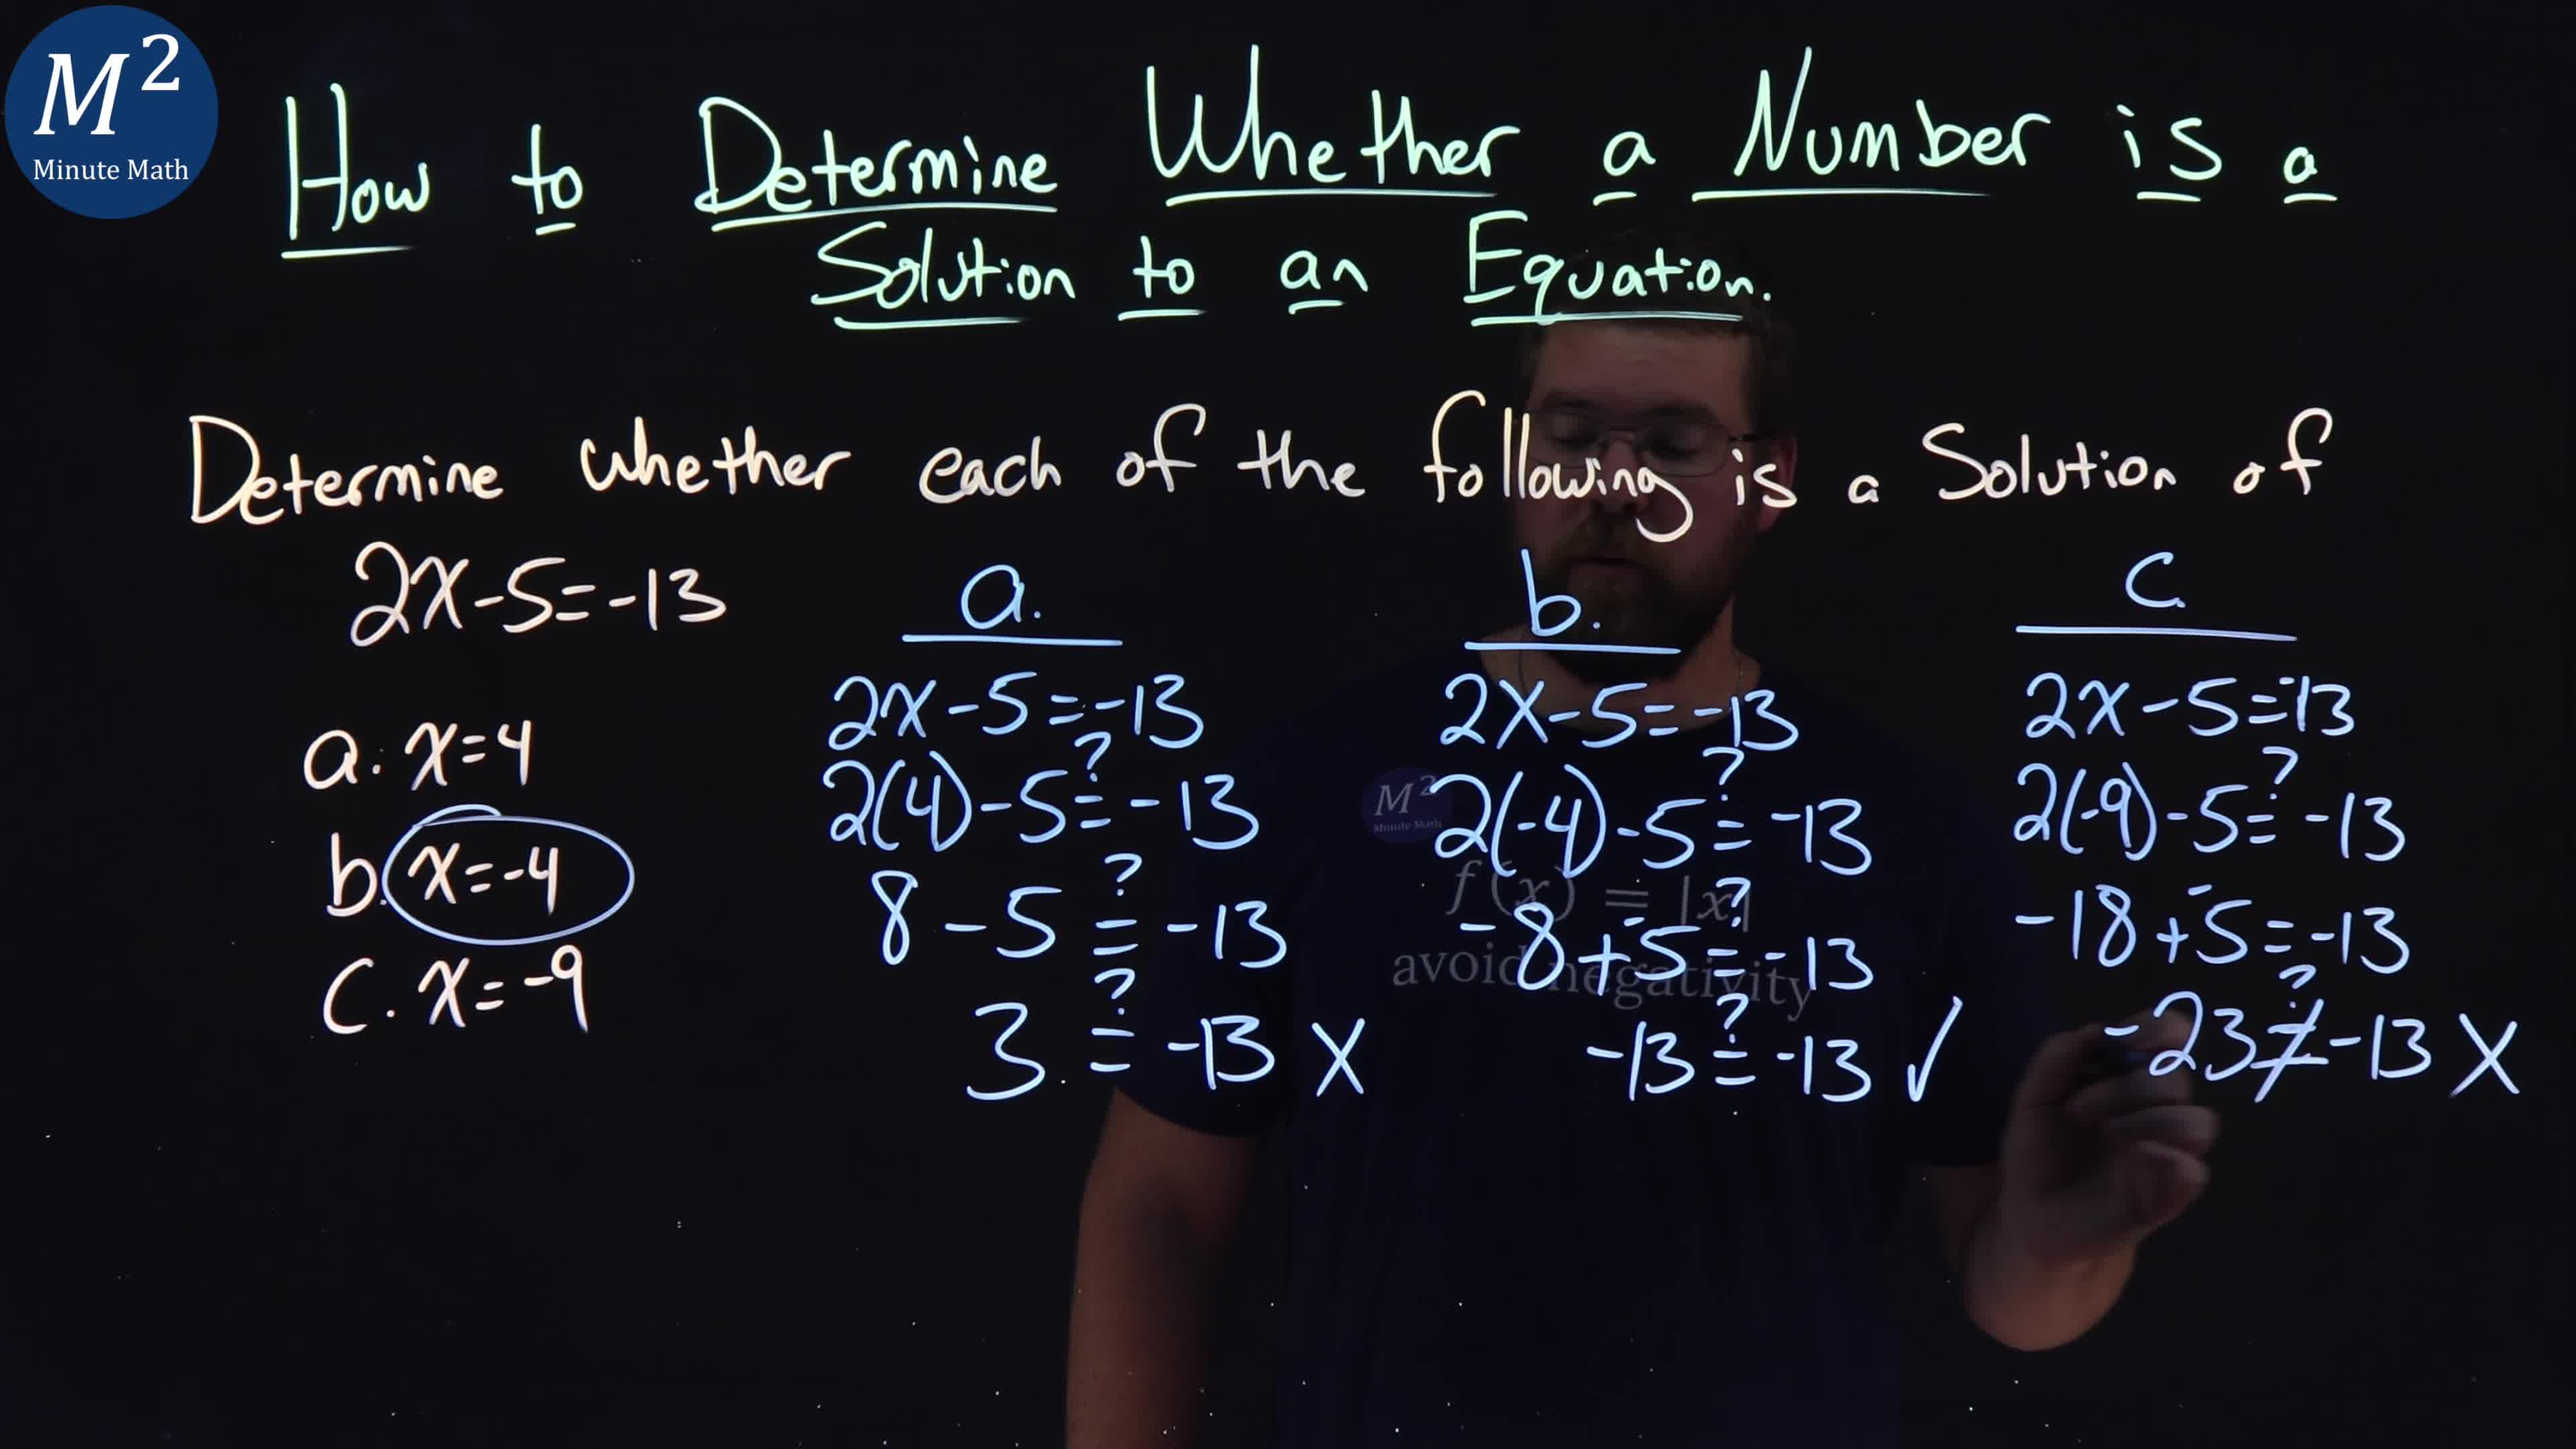 M²
Minute Math
How to Determine Whether a Number is a
Solution to an Equation.
Determine whether each of the following is a Solution of
2x-5=-13
a. x=4
b. x=-4
c. x=-9
a.
2x-5=-13
2(4)-5≟-13
8-5≟-13
3≟-13 X
b.
2x-5=-13
2(-4)-5≟-13
-8+-5≟-13
-13≟-13 ✓
c.
2x-5=-13
2(-9)-5≟-13
-18+-5=-13
-23≠-13 X
M²
Minute Math
f(x) = |x|
avoid negativity